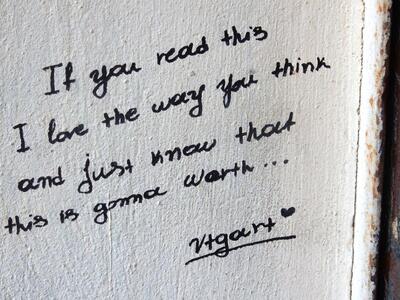 If you read this
I love the way you think
and just know that
this is gonna worth...
vtgart